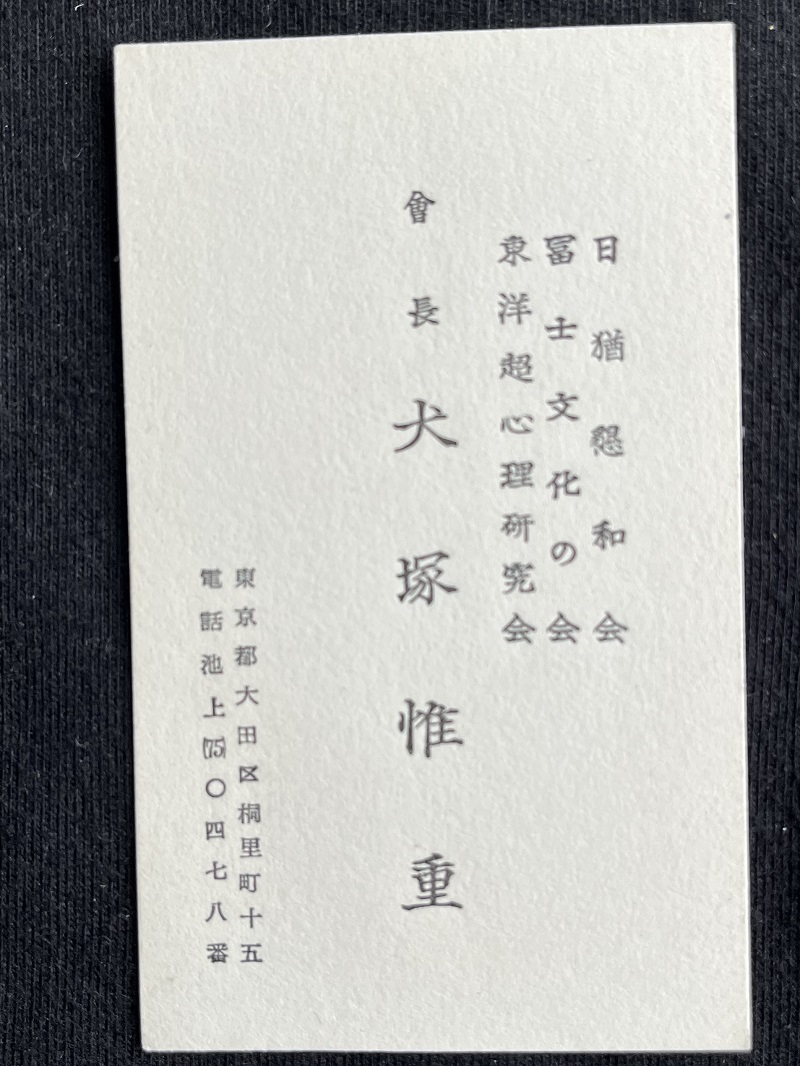 日猶懇和会
冨士文化の会
東洋超心理研究会
會長 犬塚惟重
東京都大田区桐里町十五
電話池上(75)〇四七八番